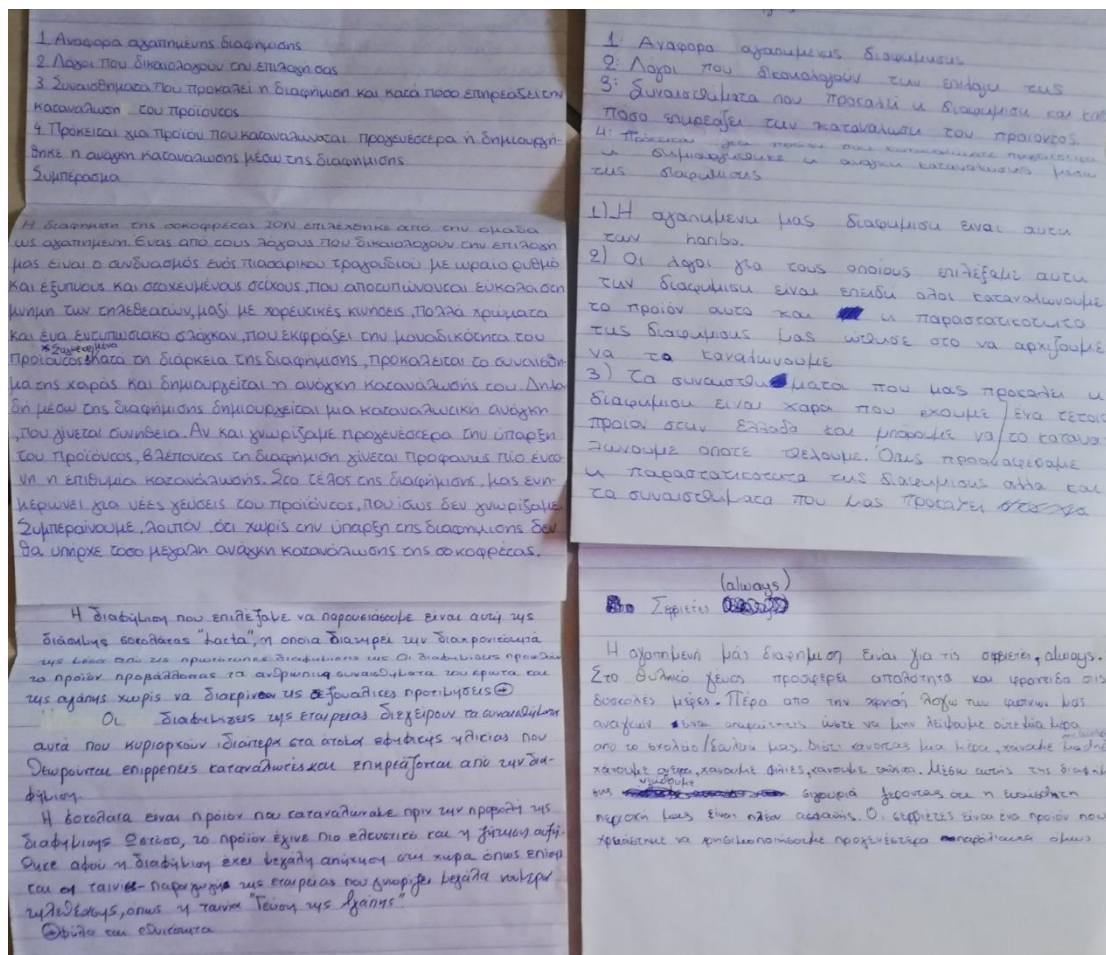 1 Αναφορα αγαπημένης διαφήμισης
2 Λόγοι που δικαιολογούν την επιλογή σας
3 Συναισθήματα που προκαλεί η διαφήμιση και κατά πόσο επηρεάζει την
κατανάλωση του προϊόντος
4. Πρόκειται για προϊόν που καταναλώνεται προγενέστερα ή δημιουργή-
θηκε η ανάγκη κατανάλωσης μέσω της διαφήμισης
Συμπέρασμα
Η διαφήμιση της σοκοφρέτας ΙΟΝ επιλέχθηκε από την ομάδα
ως αγαπημένη. Ένας από τους λόγους που δικαιολογούν την επιλογή
μας είναι ο συνδυασμός ενός πιασάρικου τραγουδιού με ωραίο ρυθμό
και έξυπνους και στοχευμένους στίχους, που αποτυπώνονται εύκολα στη
μνήμη των τηλεθεατών, μαζί με χορευτικές κινήσεις, πολλά χρώματα
και ένα εντυπωσιακό σλόγκαν, που εκφράζει την μοναδικότητα του
προϊόντος *Συγκεκριμένα κατα τη διάρκεια της διαφήμισης, προκαλείται το συναίσθη-
μα της χαράς και δημιουργείται η ανάγκη κατανάλωσής του. Δηλα-
δή μέσω της διαφήμισης δημιουργείται μια καταναλωτική ανάγκη
,που γίνεται συνήθεια. Αν και γνωρίζαμε προγενέστερα την ύπαρξη
του προϊόντος, βλέποντας τη διαφήμιση γίνεται προφανώς πιο έντο-
νη η επιθυμία κατανάλωσης. Στο τέλος της διαφήμισης, μας ενη-
μερώνει για νέες γεύσεις του προϊόντος, που ίσως δεν γνωρίζαμε.
Συμπεραίνουμε, λοιπόν, ότι χωρίς την ύπαρξη της διαφήμισης δεν
θα υπήρχε τόσο μεγάλη ανάγκη κατανάλωσης της σοκοφρέτας.
Η διαφήμιση που επιλέξαμε να παρουσιάσουμε είναι αυτή της
διάσημης σοκολάτας "Lacta", η οποια διατηρεί την διαχρονικότητά
της μέσα από τις πρωτότυπες διαφημίσεις της Οι διαφημίσεις
το προϊον προβάλλοντας τα ανθρώπινα συναισθήματα του έρωτα και
της αγάπης χωρίς να διακρίνει τις σεξουαλικές προτιμήσεις
Οι διαφημίσεις της εταιρείας διεγείρουν τα συναισθήματα
αυτά που κυριαρχούν ιδιαίτερα στα άτομα εφηβικής ηλικίας που
θεωρούνται επιρρεπείς καταναλωτές και επηρεάζονται από την δια-
φήμιση.
Η σοκολατα είναι προϊον που καταναλώναμε πριν την προβολή της
διαφήμισης Ωστόσο, το προϊον έγινε πιο ελκυστικό και η ζήτηση αυξή-
θηκε αφού η διαφήμιση έχει μεγάλη απήχηση στη χώρα όπως επίσης
και οι ταινίες-παραγωγής της εταιρείας που γνωρίζει μεγάλα νούμερα
τηλεθέασης, όπως η ταινία "Γεύση της Αγάπης"
φύλο και εθνικότητα
1: Αναφορα αγαπημενης διαφημισης
2: Λογοι που δικαιολογουν την επιλογη της
3: Συναισθηματα που προκαλει η διαφημιση και κατα
ποσο επηρεαζει την καταναλωση του προιοντος.
4: Προκειται για προιον που καταναλωνεται
η δημιουργηθηκε η αναγκη καταναλωσης μεσω
της διαφημισης
1) Η αγαπημενη μας διαφημιση ειναι αυτη
των haribo.
2) Οι λογοι για τους οποιους επιλεξαμε αυτη
την διαφημιση ειναι επειδη ολοι καταναλωνουμε
το προϊον αυτο και η παραστατικοτητα
της διαφημισης μας ωθησε στο να αρχιζουμε
να το καναλωνουμε
3) Τα συναισθηματα που μας προκαλει η
διαφημιση ειναι χαρα που εχουμε ενα τετοιο
προιον στην Ελλαδα και μπορουμε να το κατανα-
λωνουμε οποτε θελουμε. Οπως προαναφεραμε
η παραστατικοτητα της διαφημισης αλλα και
τα συναισθηματα που μας προκαλει
(always)
Σερβιετες
Η αγαπημένη μάς διαφήμιση είναι για τις σερβιετες, always.
Στο θυλικό γένος προσφέρει απαλότητα και φροντιδα στις
δύσκολες μέρες. Πέρα από την χρησή λόγω των φυσικών μας
αναγκών ειναι απαραίτητες ώστε να μην λείψουμε ούτε μία μέρα
απο το σχολείο/δουλειά μας. Διότι χάνοντας μια μέρα, χάνουμε
χάνουμε χάνουμε φιλίες, χάνουμε Μέσω αυτής της διαφήμι-
σης νιώθουμε σιγουριά ξεροντας οτι η ευαίσθητη
περιοχή μας είναι πλέον ασφαλής. Ο σερβιετες είναι ένα προϊον που
χρειάστηκε να χρησιμοποιήσουμε προγενέστερα όμως